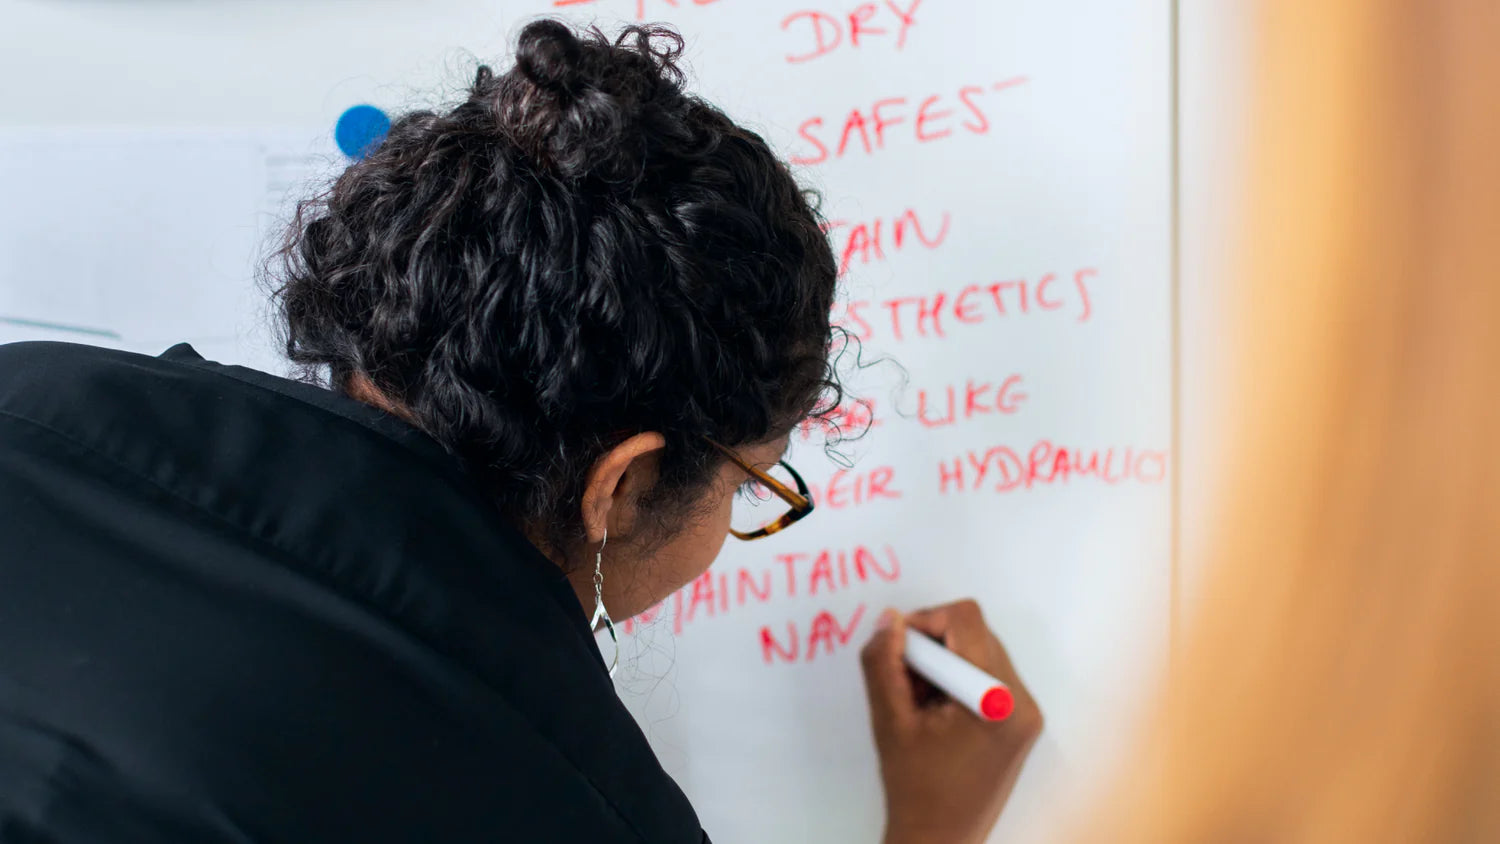 DRY
SAFEST
TAIN
STHETICS
LIKE
HYDRAULIC
MAINTAIN
NAV